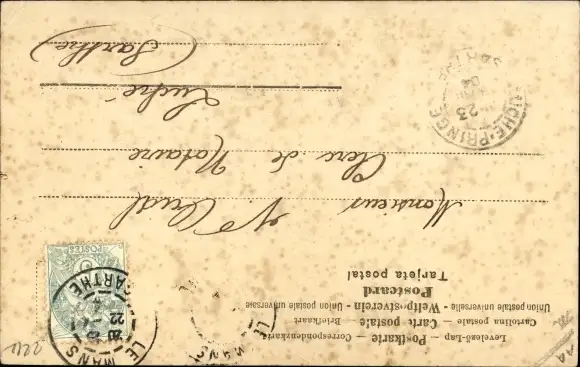 Levelező-Lap — Postkarte — Correspondenzkarte
Cartolina postale — Carte postale — Briefkaart
Union postale universelle - Weltpostverein - Union postale universae
Postcard
Tarjeta postal
LE MANS
SARTHE
22
POSTES
LE
Monsieur
Clerc de Notaire
Luché
(Sarthe
LUCHÉ-PRINGÉ
23
04
SARTHE